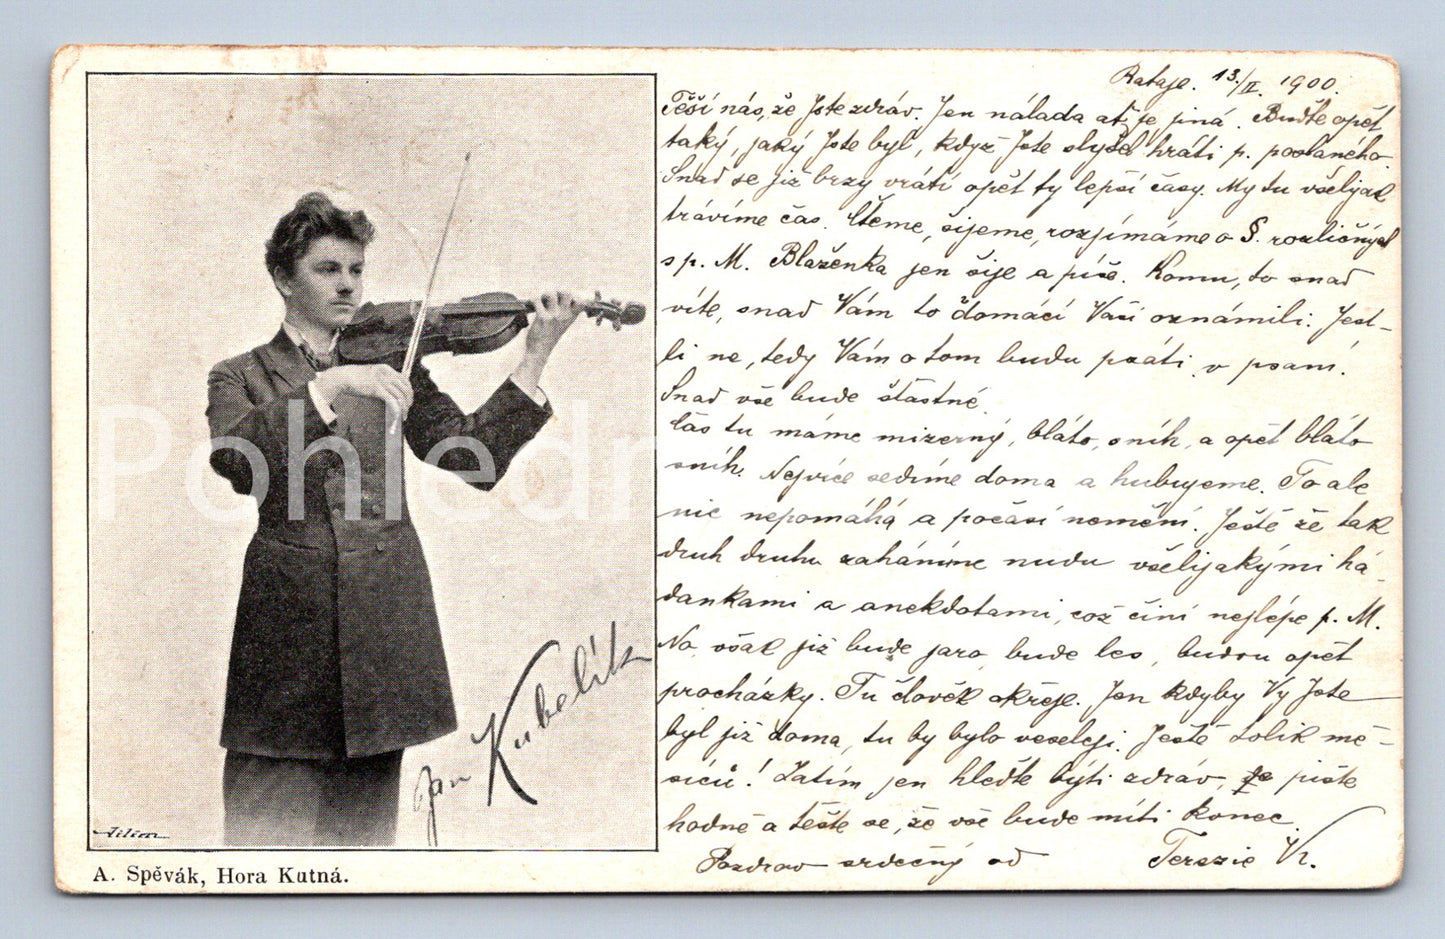 Rataje. 13./II. 1900.
Těší nás, že Jste zdráv. Jen nálada ať je jiná. Buďte opět
taký, jaký Jste byl, když Jste slyšel hráti p. poslaného.
Snad se již brzy vrátí opět ty lepší časy. My tu všelijak
trávíme čas. Čteme, šijeme, rozjímáme o §. rozličných
s p. M. Blaženka jen šije a píše. Komu, to snad
víte, snad Vám to domácí Vaši oznámili. Jest-
li ne, tedy Vám o tom budu psáti v psaní.
Snad vše bude šťastné.
Čas tu máme mizerný, bláto, sníh, a opět bláto
sníh. Nejvíce sedíme doma a hubujeme. To ale
nic nepomáhá a počasí nemění. Ještě že tak
druh druhu zaháníme nudu všelijakými há-
dankami a anekdotami, což činí nejlépe p. M.
No, však již bude jaro, bude les, budou opět
procházky. Tu člověk okřeje. Jen kdyby Vy Jste
byl již doma, tu by bylo veseleji. Ještě tolik mě-
síců! Zatím jen hleďte býti zdráv, pište
hodně a těšte se, že vše bude míti konec.
Pozdrav srdečný od Terezie Vr.
Jan Kubelík
A. Spěvák, Hora Kutná.
Pohledn